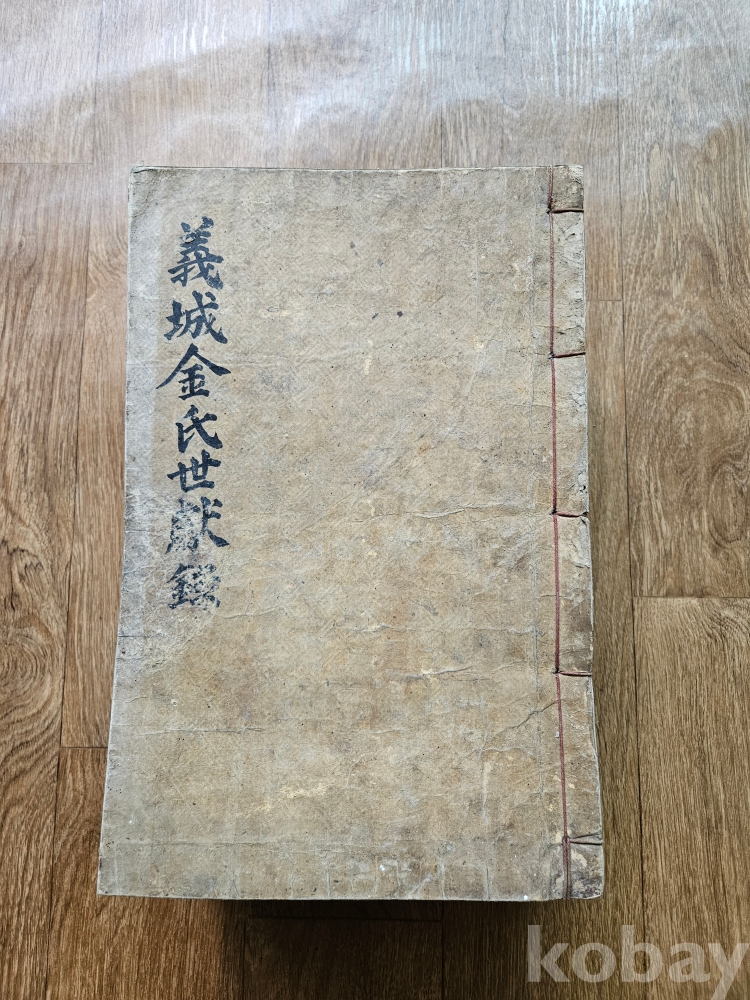 義城金氏世獻錄
kobay